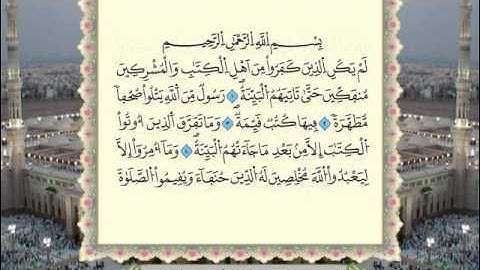 بِسْمِ اللَّهِ الرَّحْمَٰنِ الرَّحِيمِ
لَمْ يَكُنِ الَّذِينَ كَفَرُوا مِنْ أَهْلِ الْكِتَٰبِ وَالْمُشْرِكِينَ
مُنفَكِّينَ حَتَّىٰ تَأْتِيَهُمُ الْبَيِّنَةُ ١ رَسُولٌ مِّنَ اللَّهِ يَتْلُوا صُحُفًا
مُّطَهَّرَةً ٢ فِيهَا كُتُبٌ قَيِّمَةٌ ٣ وَمَا تَفَرَّقَ الَّذِينَ أُوتُوا
الْكِتَٰبَ إِلَّا مِنۢ بَعْدِ مَا جَاءَتْهُمُ الْبَيِّنَةُ ٤ وَمَا أُمِرُوا إِلَّا
لِيَعْبُدُوا اللَّهَ مُخْلِصِينَ لَهُ الدِّينَ حُنَفَاءَ وَيُقِيمُوا الصَّلَوٰةَ